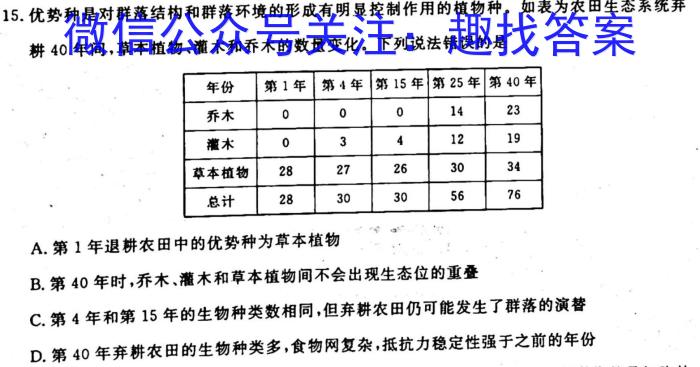 15. 优势种是对群落结构和群落环境的形成有明显控制作用的植物种。如表为农田生态系统弃
耕 40 年间,草本植物、灌木和乔木的数量变化。下列说法错误的是
微信公众号关注：趣找答案
年份 第 1 年 第 4 年 第 15 年 第 25 年 第 40 年
乔木 0 0 0 14 23
灌木 0 3 4 12 19
草本植物 28 27 26 30 34
总计 28 30 30 56 76
A. 第 1 年退耕农田中的优势种为草本植物
B. 第 40 年时,乔木、灌木和草本植物间不会出现生态位的重叠
C. 第 4 年和第 15 年的生物种类数相同,但弃耕农田仍可能发生了群落的演替
D. 第 40 年弃耕农田的生物种类多,食物网复杂,抵抗力稳定性强于之前的年份